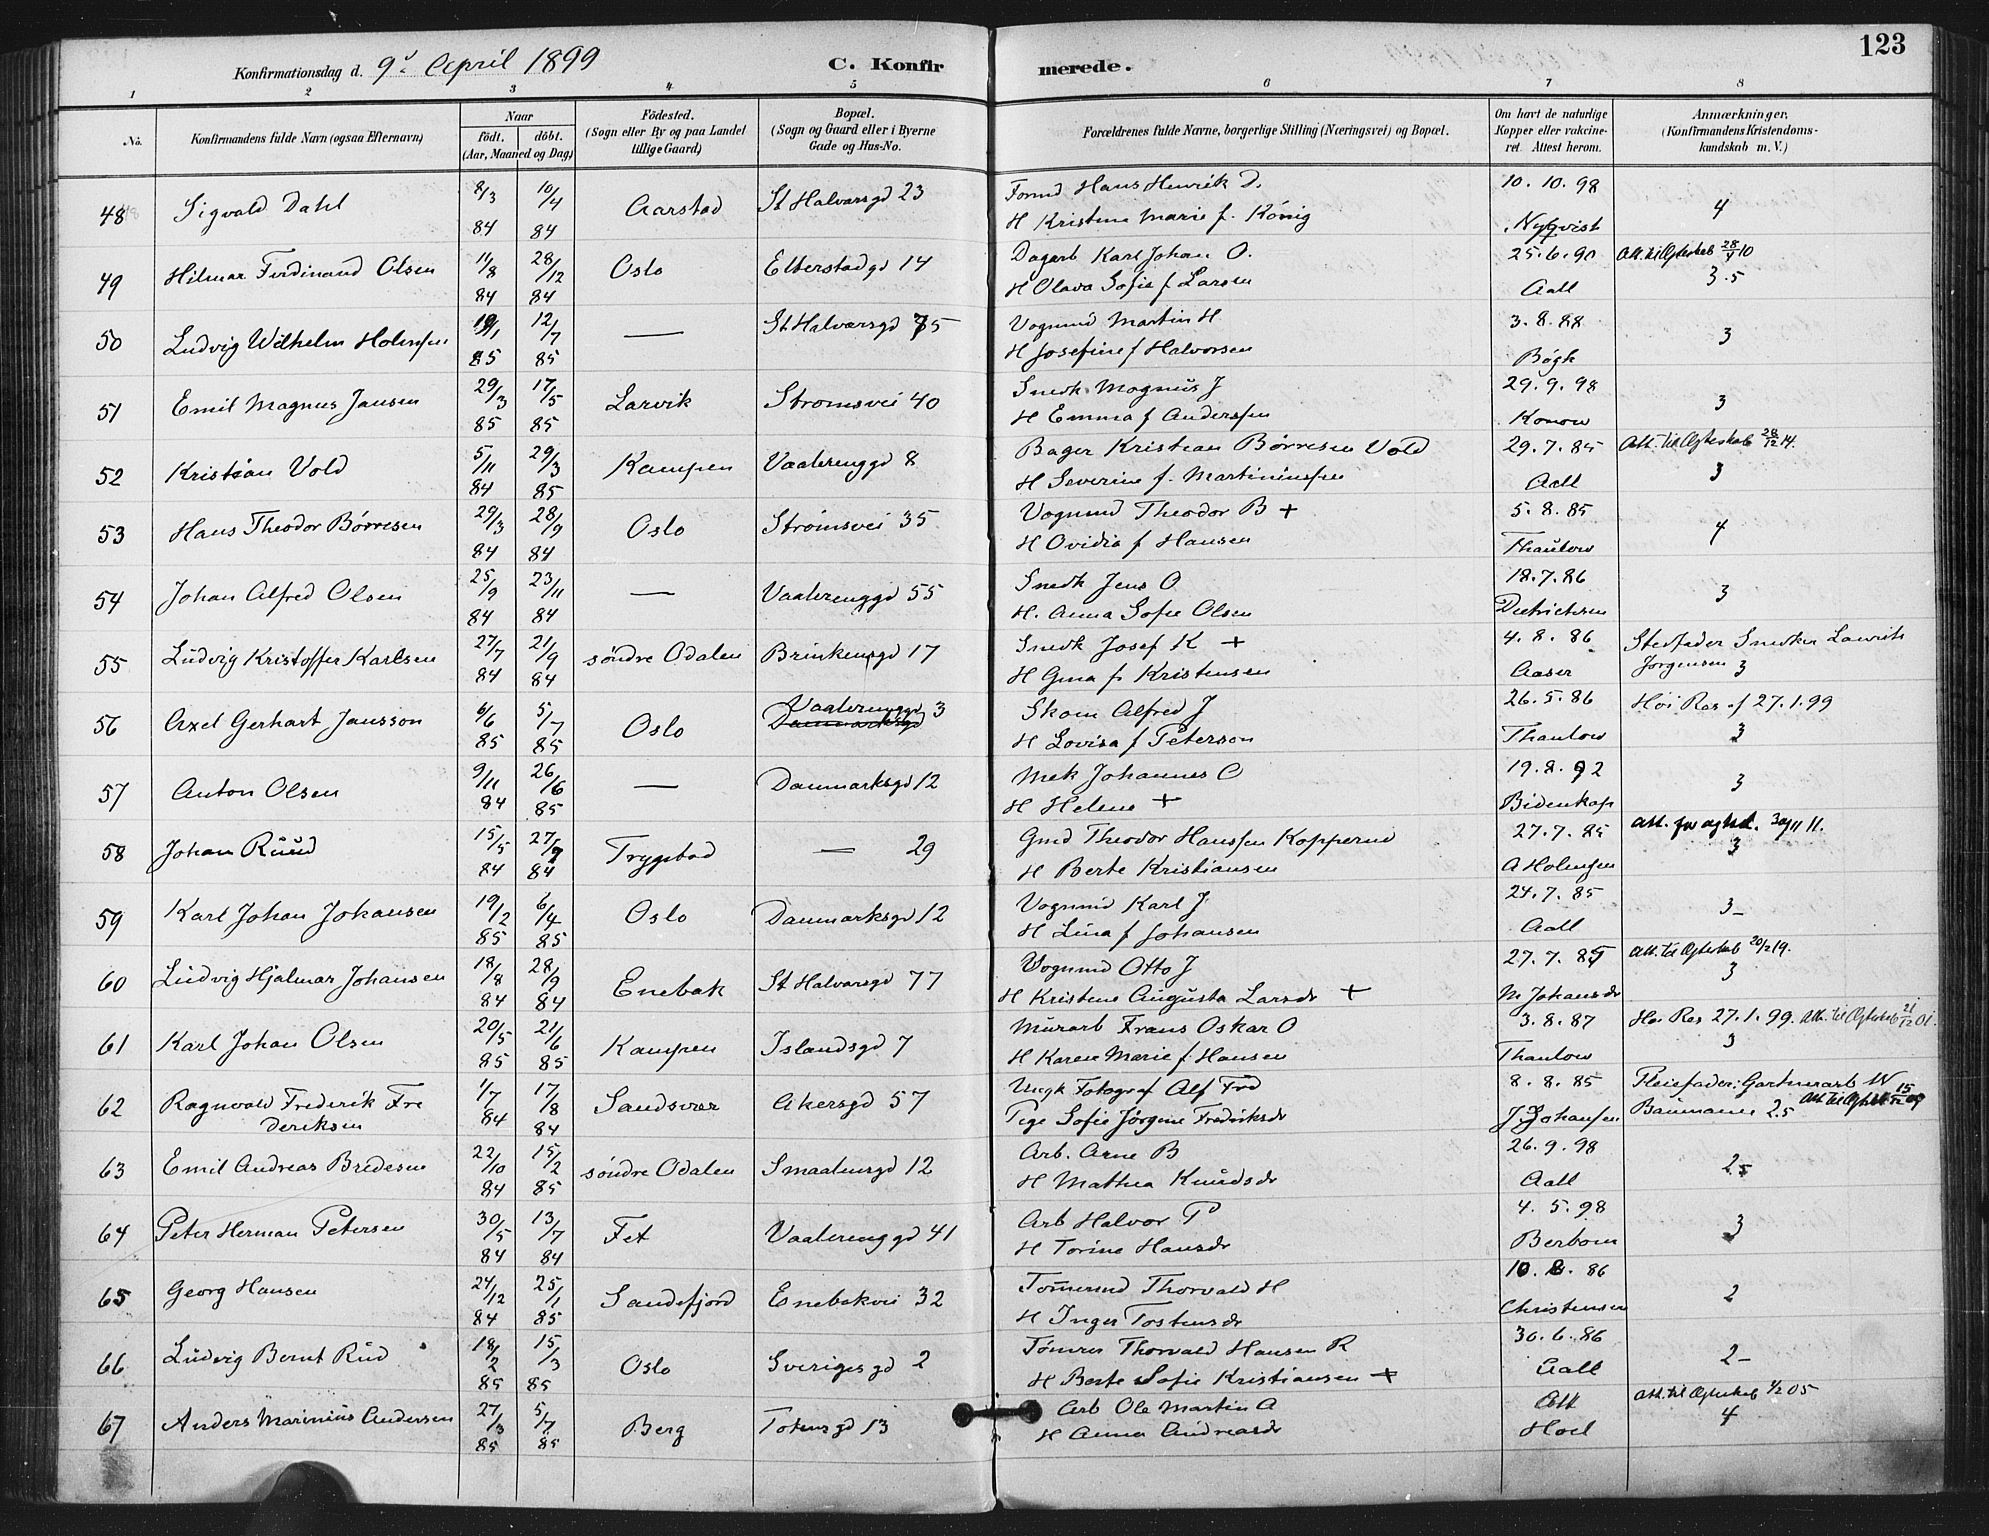 Konfirmationsdag d. 9d April 1899 C. Konfirmerede. 123
1 2 3 4 5 6 7 8
No. Konfirmandens fulde Navn (ogsaa Efternavn) Naar født. døbt. (Aar, Maaned og Dag) Fødested. (Sogn eller By og paa Landet tillige Gaard) Bopæl. (Sogn og Gaard eller i Byerne Gade og Hus-No. Forældrenes fulde Navne, borgerlige Stilling (Næringsvei) og Bopæl. Om havt de naturlige Kopper eller vakcineret. Attest herom. Anmærkninger, (Konfirmandens Kristendomskundskab m. V.)
48 Sigvald Dahl 8/3 84 10/4 84 Aarstad St Halvarsgd 23 Formd Hans Henrik D. 10. 10. 98 4
H Kristine Marie f. König Nyqvist
49 Hilmar Ferdinand Olsen 11/8 84 28/12 84 Oslo Elterstadgd 14 Dagarb Karl Johan O. 25.6.90 Att. til Ægteskab 28/4 10
H Olava Sofie f Larsen Aall 3.5
50 Ludvig Wilhelm Holmsen 19/1 85 12/7 85 — St Halvarsgd 75 Vognmd Martin H 3.8.88 3
H Josefine f Halvorsen Bøgh
51 Emil Magnus Jansen 29/3 85 17/5 85 Larvik Strømsvei 40 Snedk Magnus J 29.9.98 3
H Emma f Anderssen Konow
52 Kristian Vold 5/11 84 29/3 85 Kampen Vaalerenggd 8 Bager Kristian Børresen Vold 29.7.85 Att. til Ægteskab 28/12 14.
H Severine f. Martiniussen Aall 3
53 Hans Theodor Børresen 29/3 84 28/9 84 Oslo Strømsvei 35 Vognmd Theodor B + 5.8.85 4
H Ovidia f Hansen Thaulow
54 Johan Alfred Olsen 25/9 84 23/11 84 — Vaalerenggd 55 Snedk Jens O 18.7.86 3
H. Anna Sofie Olsen Dietrichsen
55 Ludvig Kristoffer Karlsen 27/7 84 21/9 84 søndre Odalen Brinkensgd 17 Snedk Josef K + 4.8.86 Stedfader Snedker Lawrits
H Gina f. Kristensen Aaser Jørgensen 3
56 Axel Gerhart Jansson 6/6 85 5/7 85 Oslo Vaalerenggd 3 Danmarksgd Skom Alfred J 26.5.86 Høi Res af 27.1.99
H Lovisa f Peterson Thaulow 3
57 Anton Olsen 9/11 84 26/6 85 — Danmarksgd 12 Mek Johannes O 19.8.92 3
H Helene + Bidenkap
58 Johan Ruud 15/5 84 27/9 84 Trygstad — 29 Gmd Theodor Hanssen Kopperud 27.7.85
H Berte Kristiansen A Holmsen 3
59 Karl Johan Johansen 19/2 85 6/4 85 Oslo Danmarksgd 12 Vognmd Karl J 24.7.85 3-
H Lina f Johansen Aall
60 Ludvig Hjalmar Johansen 18/8 84 28/9 84 Enebak St Halvarsgd 77 Vognmd Otto J 27.7.85 Att. til Ægteskab 20/2 19.
H Kristine Augusta Larsdr + M Johansdr 3
61 Karl Johan Olsen 20/5 85 21/6 85 Kampen Islandsgd 7 Murarb Frans Oskar O 3.8.87 Høi Res 27.1.99. Att. til Ægteskab 21/12 01.
H Karen Marie f. Hansen Thaulow 3
62 Ragnvald Frederik Frederiksen 1/7 84 17/8 84 Sandsvær Akersgd 57 Ungk Fotograf Alf Frd 8.8.85 Pleiefader: Gartnerarb W
Pige Sofie Jørgine Fredriksdr J. Johansen Baumann 2.5 Att til Ægtesk 15/12 09
63 Emil Andreas Bredesen 22/10 84 15/2 85 søndre Odalen Smaalensgd 12 Arb. Arne B 26.9.98 2.5
H Mathea Knudsdr Aall
64 Peter Herman Petersen 30/5 84 13/7 84 Fet Vaalerenggd 41 Arb Halvor P 4.5.98 3
H Torine Hansdr Berbom
65 Georg Hansen 24/12 84 25/1 85 Sandefjord Enebakvei 32 Tømermd Thorvald H 10.8.86 2
H Inger Tostensdr Christensen
66 Ludvig Bernt Rud 18/2 85 15/3 85 Oslo Sverigesgd 2 Tømrer Thorvald Hansen R 30.6.86 2-
H Berte Sofie Kristiansen + Aall
67 Anders Marinius Andersen 27/3 85 5/7 85 Berg Totensgd 13 Arb Ole Martin A Att Att. til Ægteskab 1/2 05
H Anna Andreasdr Hoel 4